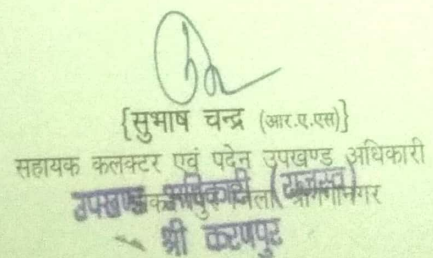 {सुभाष चन्द्र (आर.ए.एस)}
सहायक कलक्टर एवं पदेन उपखण्ड अधिकारी
उपखण्ड अधिकारी (राजस्व)
श्रीगंगानगर
श्री करणपुर